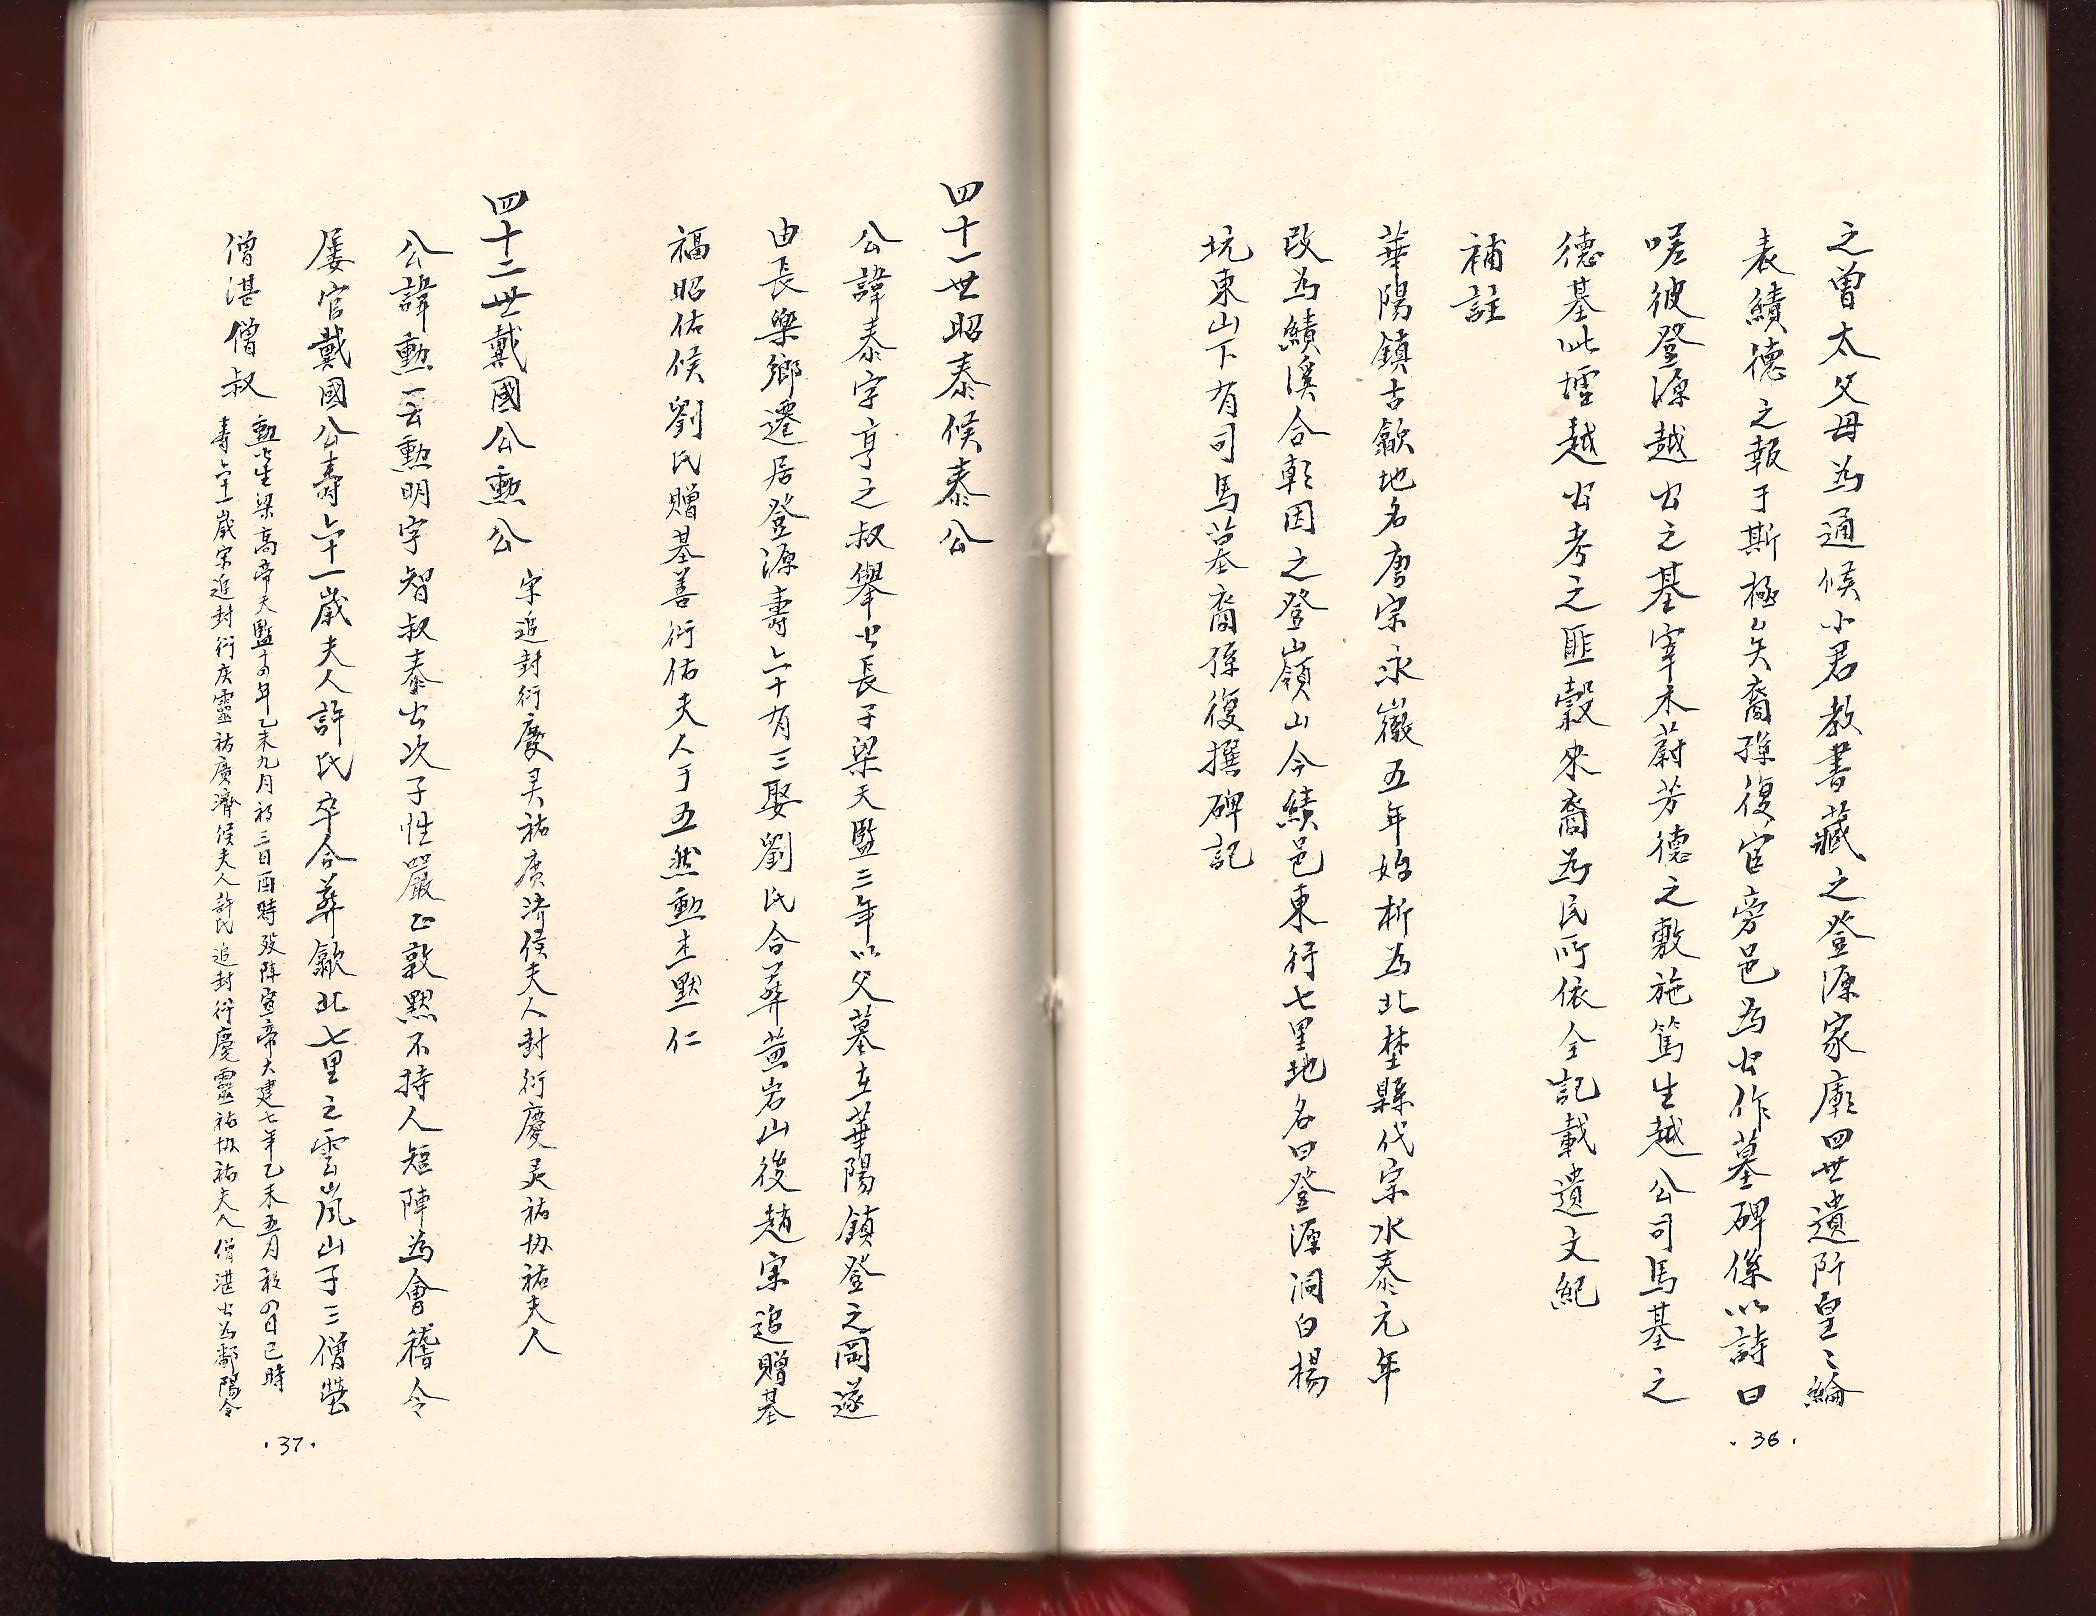 之曾太父母為通侯小君教書藏之登源家廟四世遺阡皇〻綸
表績德之報于斯極矣裔孫復官旁邑為公作墓碑係以詩曰
嗟彼登源越公之基宰木蔚芳德之敷施篤生越公司馬基之
德基此壇越公考之匪穀來裔為民所依全記載遺文紀
補註
華陽鎮古歙地名唐宗永徽五年始析為北埜縣代宗永泰元年
改為績溪合乾因之登山嶺山今績邑東行七里地名曰登源洞白楊
坑東山下有司馬墓裔孫復撰碑記
36
四十一世昭泰候泰公
公諱泰字亨之叔舉公長子梁天監二年以父墓在華陽鎮登之岡遂
由長樂鄉遷居登源壽六十有三娶劉氏合葬黃岩山後趙宋追贈基
福昭佑候劉氏贈基善衍佑夫人子五然勲杰默仁
四十二世戴國公勲公 宋追封衍慶灵祐廣济候夫人封衍慶灵祐协祐夫人
公諱勲一云勲明字智叔泰公次子性嚴正敦默不持人短陣為會稽令
屡官戴國公壽六十一歲夫人許氏卒合葬歙北七里之雲嵐山子三僧瑩
僧湛僧叔
勲公生梁高帝天監十四年乙未九月初三日酉時歿陈宣帝大建七年乙未五月初四日巳時
壽六十一歲宋追封衍庆靈祐廣濟候夫人許氏追封衍慶靈祐协祐夫人僧湛公為鄱陽令
37